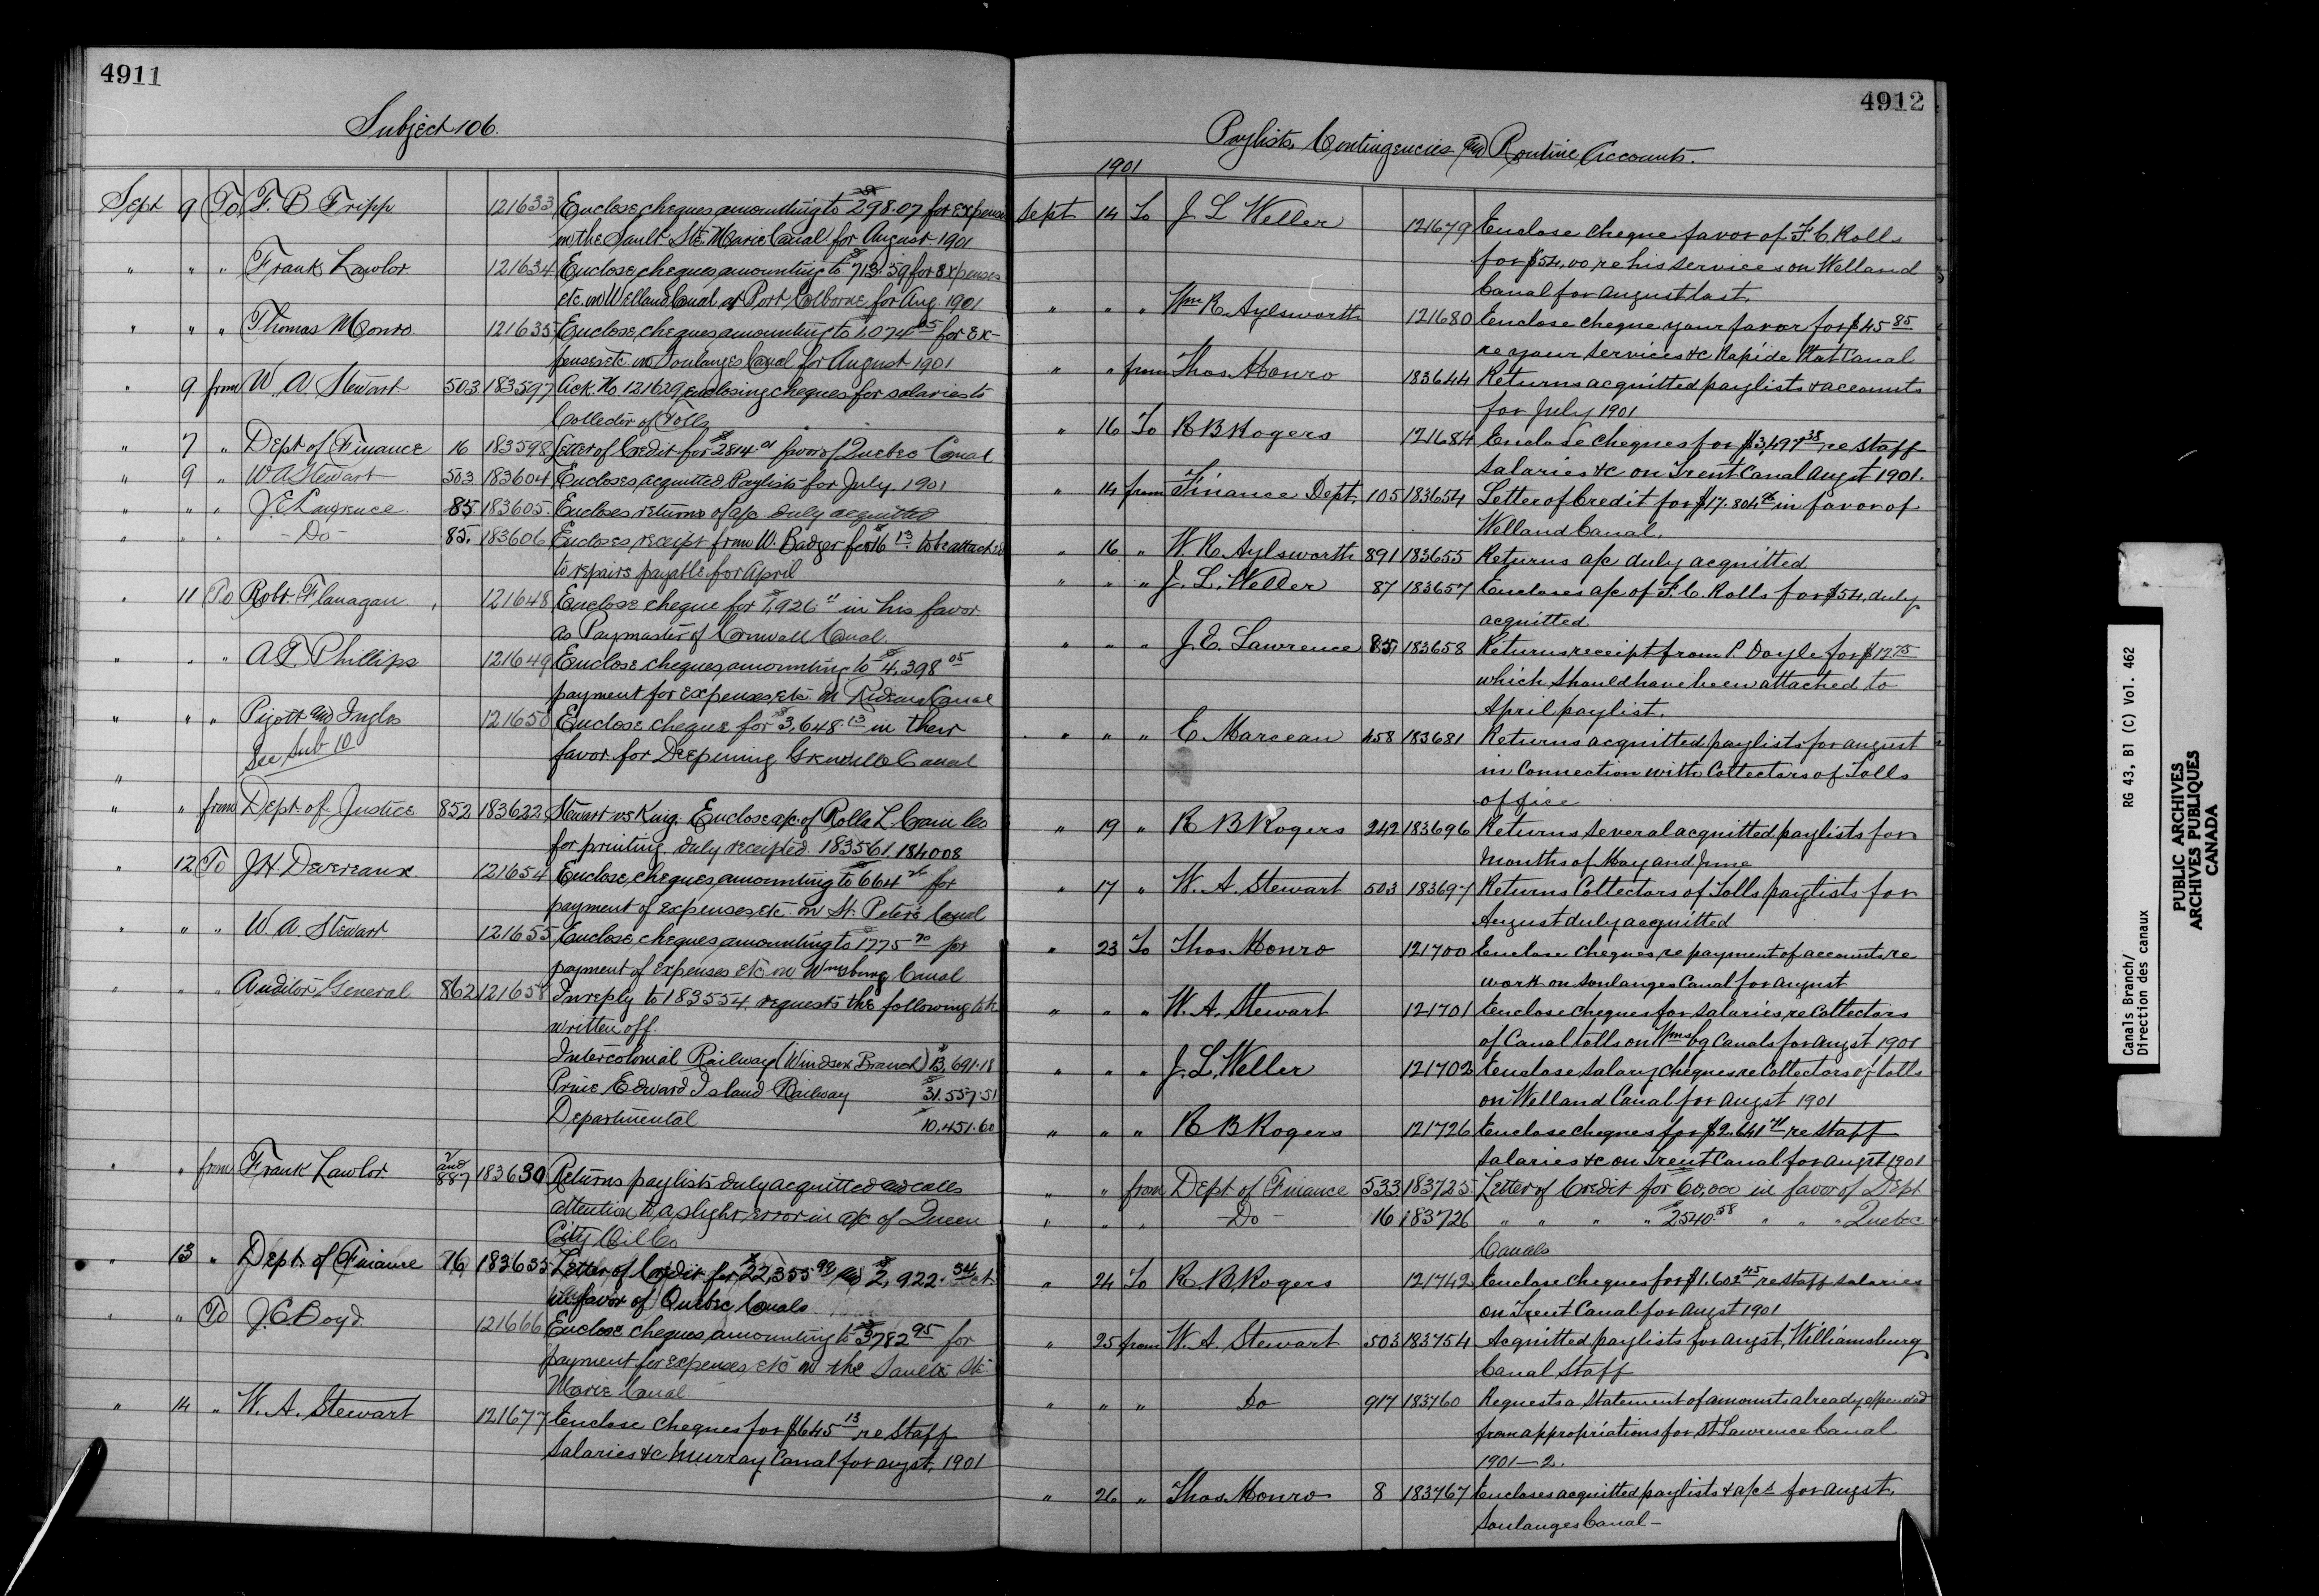 4911
Subject 106.
Sept 9 To F. B Fripp 121633 Enclose cheques amounting to $298.07 for expenses
on the Sault Ste. Marie Canal for August 1901
" " " Frank Lawlor 121634 Enclose cheques amounting to $713.59 for expenses
etc. on Welland Canal at Port Colborne for Aug. 1901
" " " Thomas Monro 121635 Enclose cheques amounting to $1,074 05 for Ex-
penses etc on Soulanges Canal for August 1901
" 9 from W. A. Stewart 503 183597 Ack. No 121629 enclosing cheques for salaries to
Collector of Tolls
" 7 " Dept of Finance 16 183598 Letter of Credit for $2814. favor of Quebec Canal
" 9 " W A Stewart 503 183604 Encloses acquitted Paylists for July 1901
" " " J. E Lawrence 85 183605. Encloses returns of a/c duly acquitted
" " " - Do - 85. 183606 Encloses receipt from W. Badger for $16 13 to be attached
to repairs payable for April
" 11 To Robt. Flanagan 121648 Enclose cheque for $1,926 11 in his favor
as Paymaster of Cornwall Canal.
" " " A T. Phillips 121649 Enclose cheques amounting to $4,398 05
payment for expenses, etc. on Rideau Canal
" " " Pigott and Ingles 121650 Enclose cheque for $3,648.13 in their
See Sub 10 favor for Deepening Grenville Canal
"
" " from Dept. of Justice 852 183622 Stewart vs King. Enclose a/c. of Rolla L. Crain Co
for printing duly receipted. 183561. 184008
" 12 To J H. Devereaux 121654 Enclose cheques amounting to $664 for
payment of expenses, etc. on St. Peter's Canal
" " " W. A. Stewart 121655 Enclose cheques amounting to $1775 70 for
payment of expenses etc on Wmsburg Canal
" " " Auditor General 862 121658 In reply to 183554. requests the following to be
written off.
Intercolonial Railway (Windsor Branch) $13,691.18
Prince Edward Island Railway $31.557.51
Departmental $10,451.60
" " from Frank Lawlor 2 and 887 183630 Returns paylists duly acquitted and calls
attention to a slight error in a/c of Queen
City Oil Co
" 13 " Dept. of Finance 16 183635 Letter of Credit for $22,355 99 and $2,922. 34
in favor of Quebec Canals
" " To J. C Boyd. 121666 Enclose cheques amounting to $3782 95 for
payment for expenses, etc on the Sault Ste
Marie Canal
" 14 " W. A. Stewart 121677 Enclose cheques for $645 13 re Staff
Salaries &c Murray Canal for augst, 1901
4912
Paylists, Contingencies and Routine Accounts.
1901
Sept 14 To J L Weller 121679 Enclose cheque favor of F. C. Rolls
for $54.00 re his services on Welland
Canal for August last.
" " " Wm R. Aylsworth 121680 Enclose cheque your favor for $45 85
re your services &c Rapide Plat Canal
" " from Thos. Monro 183644 Returns acquitted paylists & accounts
for July 1901
" 16 To R B Rogers 121684 Enclose cheques for $3,497 38 re staff
Salaries &c on Trent Canal Augst 1901.
" 14 from Finance Dept 105 183654 Letter of Credit for $17.804 in favor of
Welland Canal.
" 16 " W. R. Aylsworth 891 183655 Returns a/c duly acquitted
" " " J. L. Weller 87 183657 Encloses a/c of F. C. Rolls for $54, duly
acquitted
" " " J. E. Lawrence 85 183658 Returns receipt from P. Doyle for $12 75
which should have been attached to
April paylist.
" " " E. Marceau 458 183681 Returns acquitted paylists for august
in Connection with Collectors of Tolls
office
" 19 " R B Rogers 242 183696 Returns several acquitted paylists for
Months of May and June
" 17 " W. A. Stewart 503 183697 Returns Collectors of Tolls paylists for
August duly acquitted
" 23 To Thos. Monro 121700 Enclose cheques re payment of accounts re
work on Soulanges Canal for august
" " " W. A. Stewart 121701 Enclose cheques for salaries, re Collectors
of Canal tolls on Wmsbg Canals for augst 1901
" " " J. L. Weller 121702 Enclose salary cheques, re Collectors of tolls
on Welland Canal for augst 1901
" " " R B Rogers 121726 Enclose cheques for $2,641 re staff
salaries &c on Trent Canal for augst 1901
" " from Dept of Finance 533 183725 Letter of Credit for $60,000 in favor of Dept
" " " - Do - 16 183726 " " " " $2540.58 " " " Quebec
Canals
" 24 To R. B Rogers 121742 Enclose cheques for $1.602 45 re staff salaries
on Trent Canal for augst 1901
" 25 from W. A. Stewart 503 183754 Acquitted paylists for augst, Williamsburg
Canal Staff
" " " Do 917 183760 Requests a Statement of amounts already expended
from appropriations for St Lawrence Canal
1901–2.
" 26 " Thos. Monro 8 183767 Encloses acquitted paylists & a/cs for augst.
Soulanges Canal –
Canals Branch/ RG 43, B1 (C) Vol. 462
Direction des canaux
PUBLIC ARCHIVES
ARCHIVES PUBLIQUES
CANADA